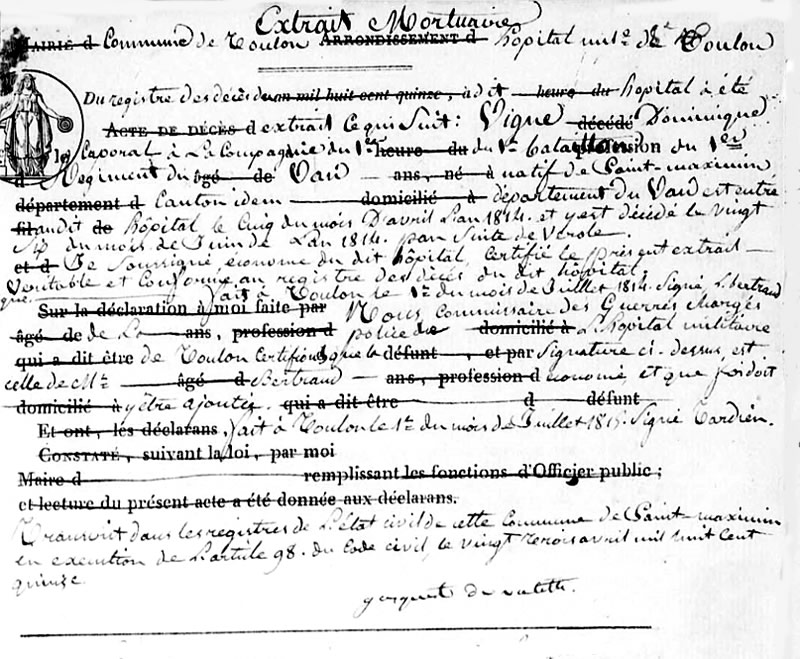 Extrait Mortuaire
MAIRIE d Commune de Toulon ARRONDISSEMENT d hopital mre de Toulon
Du registre des décès de an mil huit cent quinze, à dit heure du hopital à été
ACTE DE DÉCÈS d extrait Ce qui Suit: Vigne décédé Dominique
Caporal à La Compagnie du 1er heure du du 1er bataillon profession du 1er
d Regiment du âgé de Var ans, né à natif de Saint-maximin
département d Canton idem domicilié à département du Var est entré
fil audit de hôpital le Cinq du mois D'avril L'an 1814. et y est décédé le vingt
du mois de Juin de L'an 1814. par Suite de Vérole.
et d Je Soussigné économe du dit hôpital, Certifié le présent extrait
Veritable et Conforme au registre des décès du dit hopital,
que. fait à Toulon le 1er du mois de Juillet 1814. Signé, Bertrand
Sur la déclaration à moi faite par Nous, Commissaire des Guerres chargés
âgé de de La ans, profession d police de domicilié à L'hopital militaire
qui a dit être de Toulon Certifions que la défunt , et par Signature ci-dessus, est
celle de Mr âgé d Bertrand ans, profession d économe, et que foi doit
domicilié à y être ajoutée. qui a dit être d défunt
Et ont, lés déclarans, fait à Toulon le 1er du mois de Juillet 1815. Signé Tardieu.
CONSTATÉ, suivant la loi, par moi
Maire d remplissant les fonctions d'Officier public;
et lecture du présent acte a été donnée aux déclarans.
Transcrit dans les registres de L'état civil de cette Commune de Saint-maximin
en execution de L'article 98. du Code civil, le vingt trois avril mil huit Cent
quinze